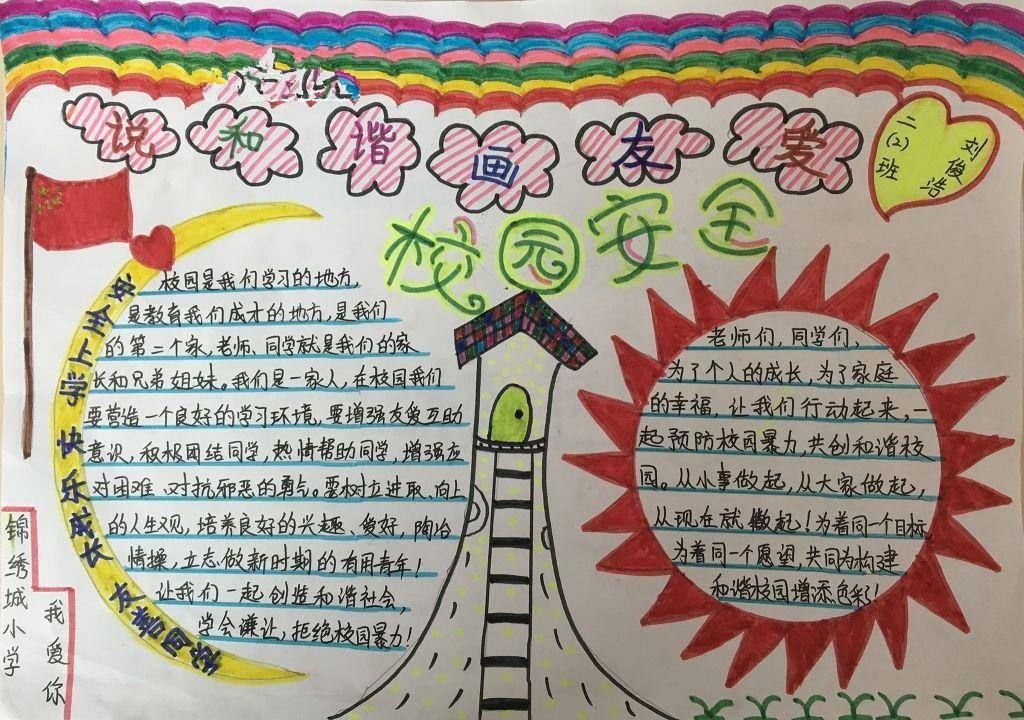 说和谐画友爱
二(2)班
刘俊浩
校园安全
安全上学 快乐成长 友善同学
校园是我们学习的地方,
是教育我们成才的地方,是我们
的第二个家,老师、同学就是我们的家
长和兄弟姐妹。我们是一家人,在校园我们
要营造一个良好的学习环境。要增强友爱互助
意识,积极团结同学,热情帮助同学,增强应
对困难、对抗邪恶的勇气。要树立进取、向上
的人生观,培养良好的兴趣、爱好,陶冶
情操,立志做新时期的有用青年!
让我们一起创造和谐社会,
学会谦让,拒绝校园暴力!
老师们,同学们,
为了个人的成长,为了家庭
的幸福,让我们行动起来,一
起预防校园暴力,共创和谐校
园。从小事做起,从大家做起,
从现在就做起!为着同一个目标
为着同一个愿望,共同为构建
和谐校园增添色彩!
锦绣城小学
我爱你